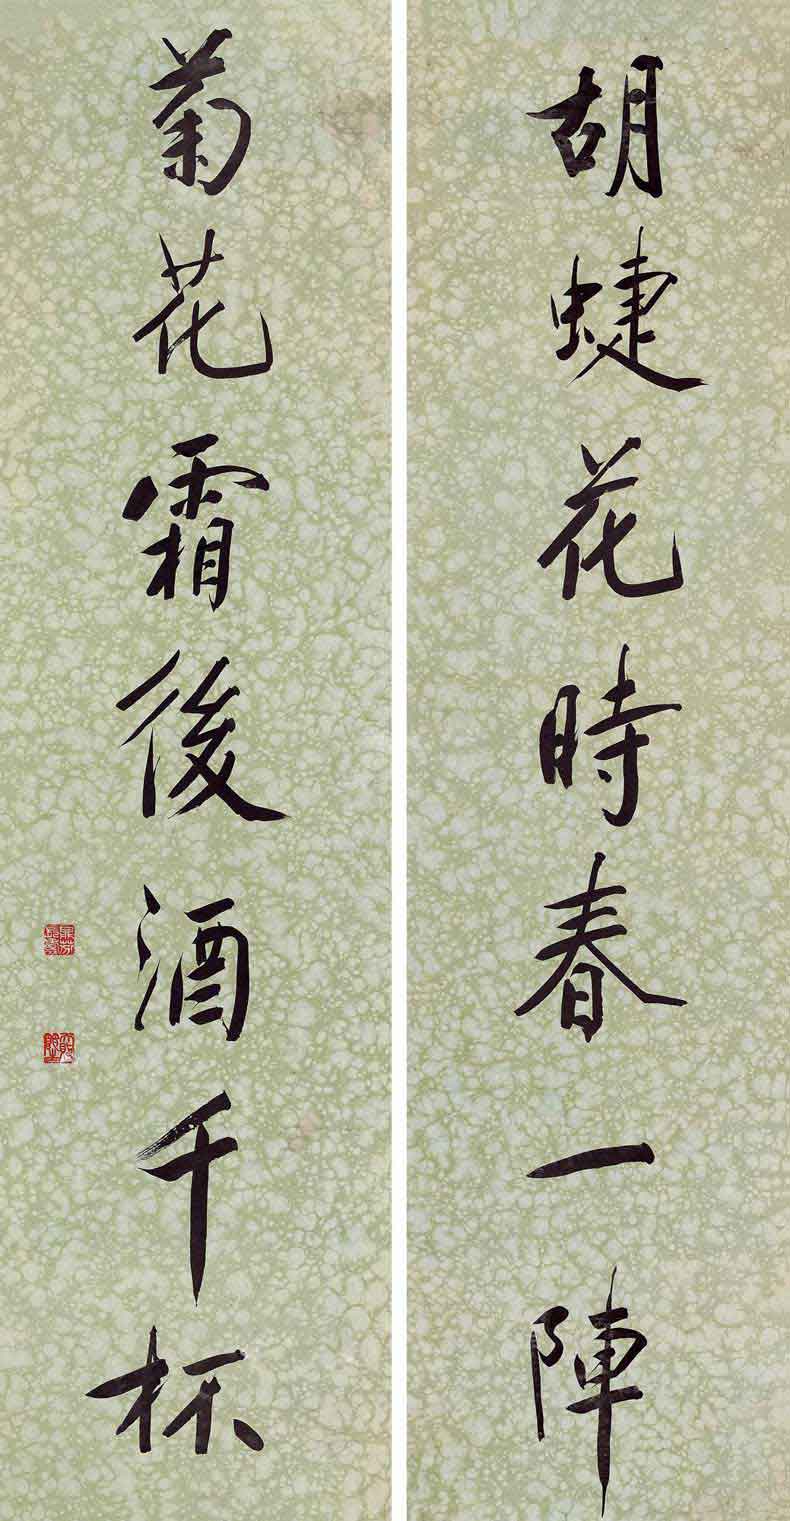 胡蜨花時春一陣
菊花霜後酒千杯